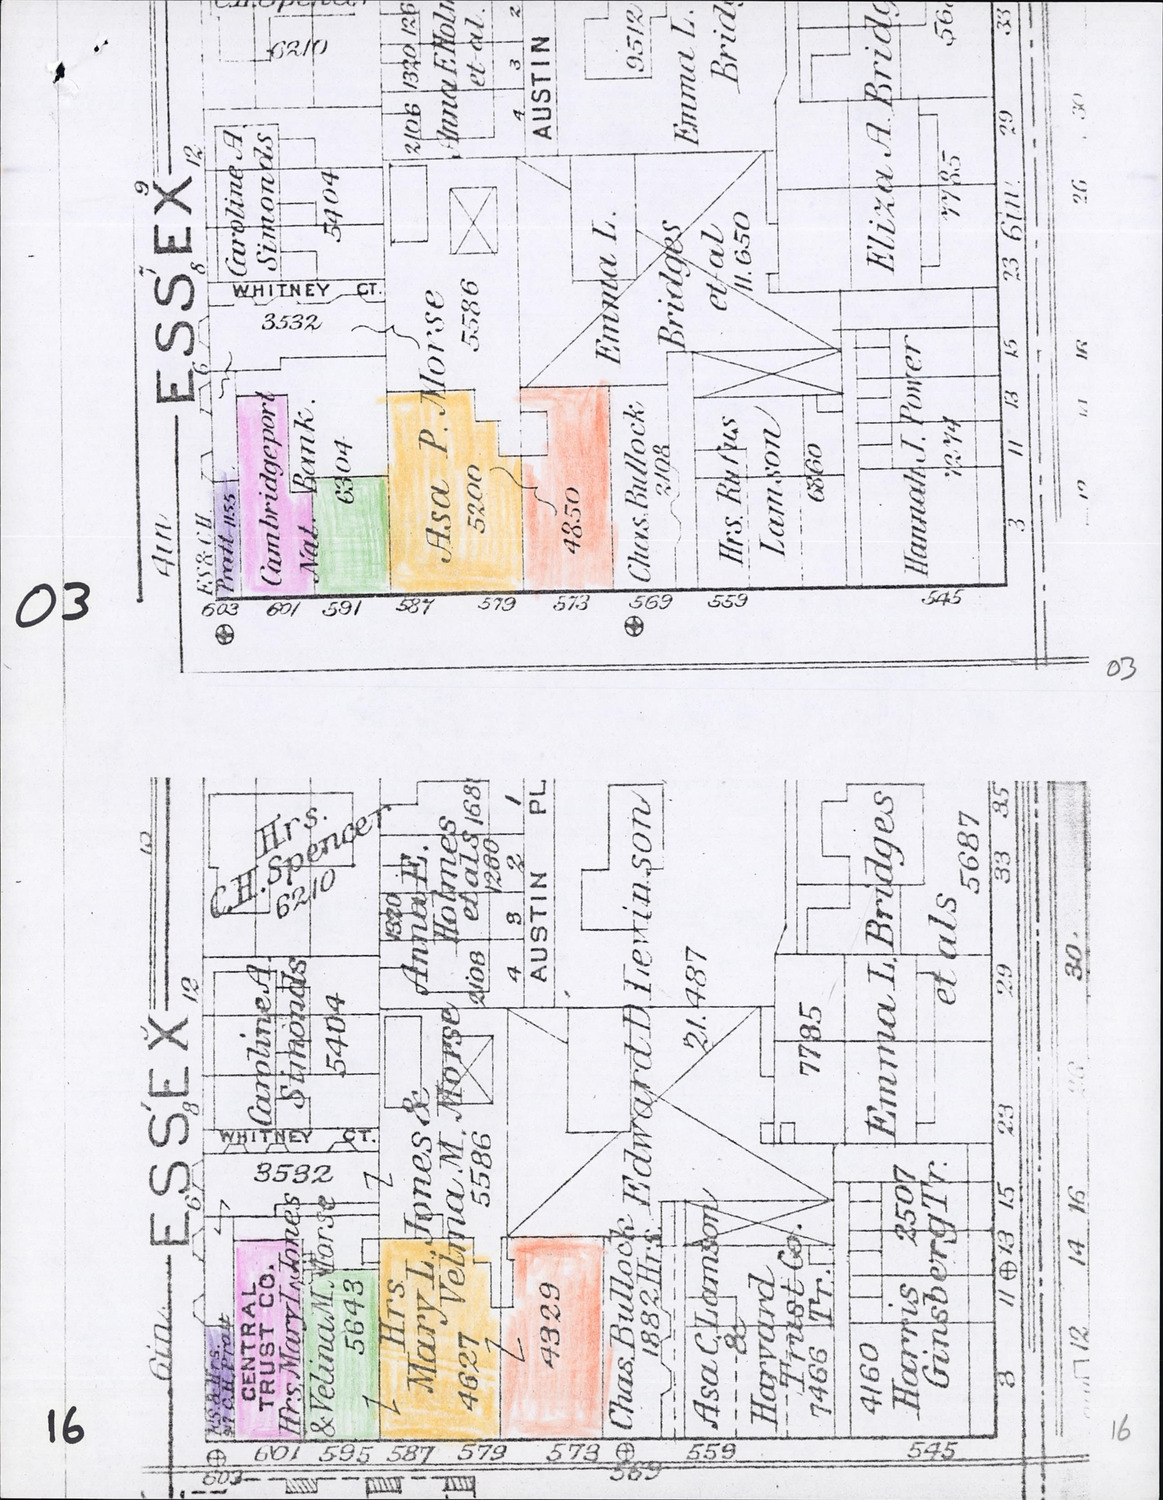 6210
2106 1320 126
Anna E. Holm
et-al.
4 3 2
AUSTIN
9512
Emma L.
Bridg
Eliza A. Bridg
7785
33
29
6in.
23
15
13
11
3
30
26
ESSEX
9
7
12
8
6
4in.
Caroline A
Simonds
5404
WHITNEY CT.
3532
Asa P. Morse
5586
5200
Emma L.
Bridges
et al
11.650
Cambridgeport
Nat. Bank.
6304
Pratt 1155
4350
Chas. Bullock
2108
Hrs. Rufus
Lamson
6860
Hannah J. Power
7274
603 601 591 587 579 573 569 559 545
03
03
ESSEX
12
8
6
6in.
Hrs.
C.H. Spencer
6210
1320
Anna E.
Holmes
et als
1280
168
2108
4 3 2 1
AUSTIN PL
Caroline A.
Simonds
5404
WHITNEY CT.
3532
Hrs
Mary L. Jones &
Velma M. Morse
5586
4627
Edward D. Levinson
21.487
7785
Emma L. Bridges
et als
5687
35
33
29
23
15
13
11
3
30
16
14
12
CENTRAL
TRUST CO.
Hrs. Mary L. Jones
& Velma M. Morse
5643
4329
Chas. Bullock
1882 Hrs.
Asa C. Lamson
&
Harvard
Trust Co.
7466 Tr.
2507
4160
Harris
Ginsberg Tr.
603 601 595 587 579 573 569 559 545
16
16